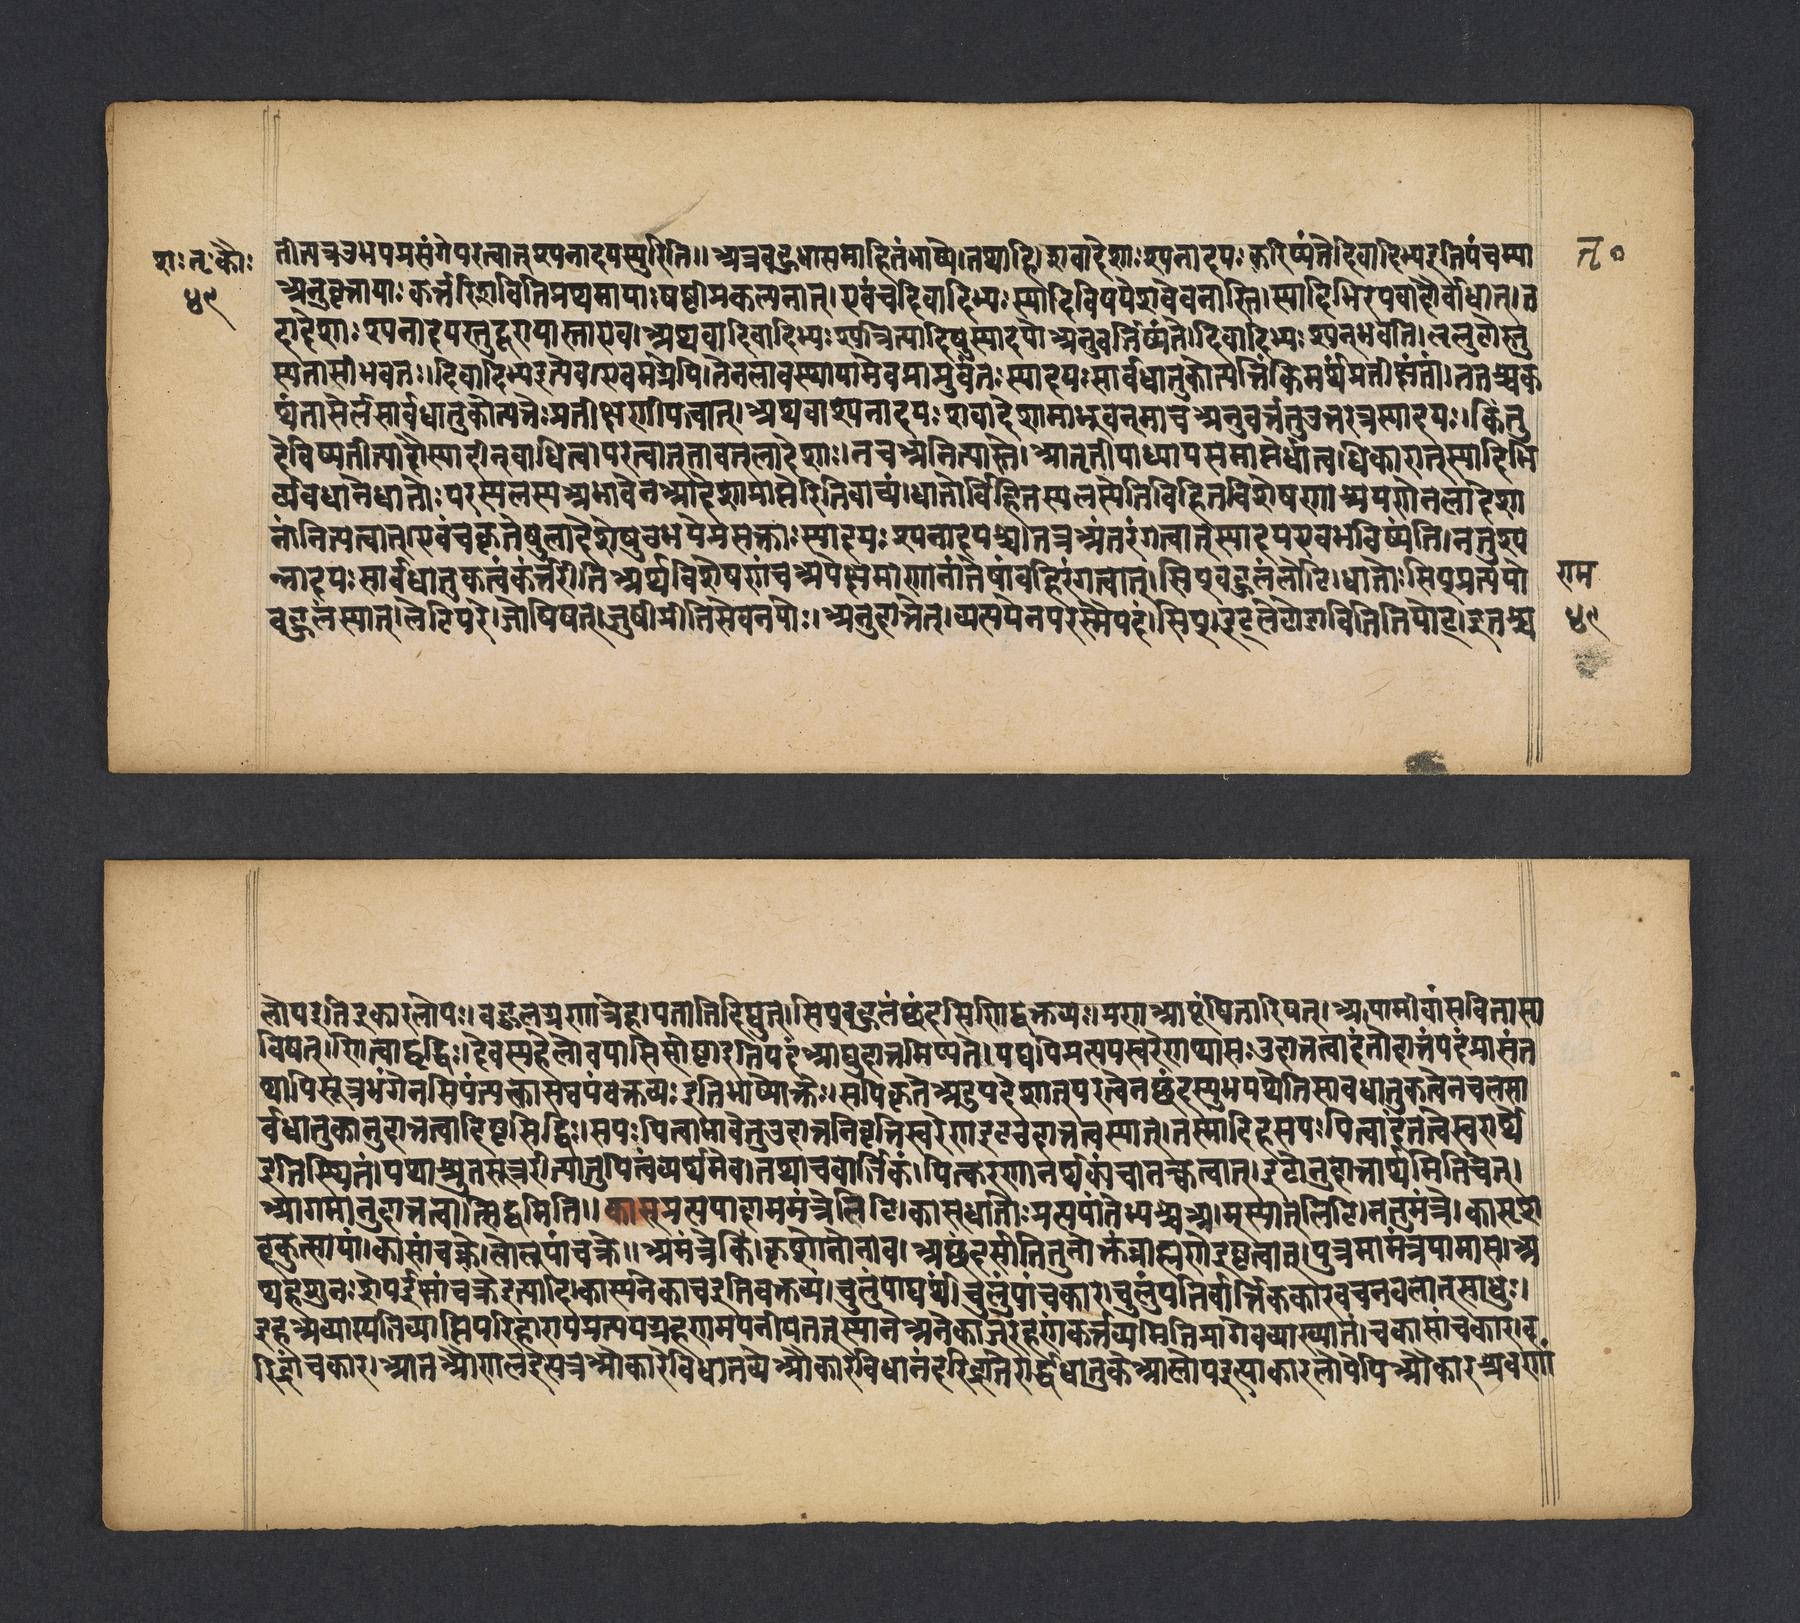 शः तृ कौः
४९
तीत्यत्र उभयप्रसंगे परत्वात् श्यनादयस्युरिति ॥ अत्र बहुधा समाहितं भाष्ये । तथाहि । शवादेशाः श्यनादयः करिष्यंते दिवादिभ्य इति पंचम्या
७०
अनुवृत्तायाः कर्त्तरि शविति प्रथमायाः षष्ठीप्रकल्पनात् । एवं च दिवादिभ्यः स्यादिविषये शवेव नास्ति । स्यादिभिरपवादैर्वाधात् । त
दादेशाः श्यनादयस्तु दूरापास्ता एव । अथवा दिवादिभ्यः श्यन्नित्यादिषु स्यादयो अनुवर्त्तिष्यंते । दिवादिभ्यः श्यन् भवति । लृलुटोस्तु
स्यतासी भवतः । दिवादिभ्य इत्येव । एवमग्रेपि । तेन लावस्थायामेव प्राप्नुवंतः स्यादयः सार्वधातुकोत्पत्तिं किमर्थं प्रतीक्षंतां । ततश्च क
थं तासेर्लसार्वधातुकोत्पत्तेः प्रतीक्षणीयत्वात् । अथवा श्यनादयः शवादेशा माभूवन् माच अनुवर्त्तंतु उत्तरत्र स्यादयः । किंतु
देविष्यतीत्यादौ स्यादीन् वाधित्वा परत्वात् तावत् लादेशाः । नच अनित्यास्ते । आतृतीयाध्यायसमाप्तेर्धात्वधिकारात् स्यादिभि
र्व्यवधाने धातोः परस्य लस्य अभावेन आदेशाप्राप्तेरिति वाच्यं । धातोर्विहितस्य लस्येति विहितविशेषणाश्रयणेन लादेशा
नां नित्यत्वात् । एवं च कृतेषु लादेशेषु उभये प्रसक्ताः स्यादयः श्यनादयश्च । तत्र अंतरंगत्वात् स्यादय एव भविष्यंति । नतु श्य
न्नादयः सार्वधातुकत्वं कर्त्तरीति अर्थविशेषणं च अपेक्षमाणानां तेषां वहिरंगत्वात् । सिप् वहुलं लेटि । धातोः सिप् प्रत्ययो
राम
वहुलं स्यात् । लेटि परे । जोषिषत् । जुषी प्रीतिसेवनयोः । अनुदात्तेत् । व्यत्ययेन परस्मैपदं । सिप् । इट् लेटोडाविति तिपोट् । इतश्च
४९
लोप इति इकारलोपः । वहुलग्रहणान्नेह । पताति दिद्युत् । सिप् वहुलं छंदसि णिद्वक्तव्यः । प्रण आयूंषि तारिषत् । अपामीवां सविता सा
विषत् । णित्वाद्वृद्धिः । देवस्य हेलो वयासिसीष्ठा इति पदं आद्युदात्तमिष्यते । यद्यपि प्रत्ययस्वरेण थासः उदात्तत्वादंतोदात्तं पदं प्राप्तं त
थापि सूत्रभंगेन सिपं त्यक्त्वा सवयं वक्तव्यः इति भाष्योक्तेः । सपि कृते अदुपदेशात् परत्वेन छंदस्युभयथेति सार्वधातुकत्वेन च लसा
र्वधातुकानुदात्तत्वादिष्टसिद्धिः । सपः पित्वाभावे तु उदात्तनिवृत्तिस्वरेण इट उदात्तत्वं स्यात् । तस्मादिह सपः पित्वादंतत्वे स्वरार्थे
इति स्थितं । यथाश्रुतसूत्ररीत्या तु पित्वं व्यर्थमेव । तथाच वार्त्तिकं । पित्करणानर्थक्यं चानच्कत्वात् । इटोनुदात्तार्थमिति चेत् ।
आगमानुदात्तत्वात्सिद्धमिति ॥ कास् प्रत्ययादाममंत्रे लिटि । कास् धातोः प्रत्ययांतेभ्यश्च आम् स्यात् लिटि । नतु मंत्रे । कासृ श
ब्दकुत्सायां । कासांचक्रे । लोलूयांचक्रे ॥ अमंत्रे किं । कृष्णो नोनाव । अछंदसीति तु नोक्तं ब्राह्मणे इष्टत्वात् । पुत्रमामंत्रयामास । अ
थ ह शुनः शेप ईक्षांचक्र इत्यादि । कास्यनेकाच इति वक्तव्यं । चुलुंपाद्यर्थं । चुलुंपांचकार । चुलुंपतिर्वार्त्तिककारवचनवलात् साधुः ।
इह अव्याप्त्यतिव्याप्तिपरिहाराय प्रत्ययग्रहणमपनीय तत्स्थाने अनेकाज्ग्रहणं कर्त्तव्यमिति प्रागेव व्याख्यातं । चकासांचकार । द
रिद्रांचकार । आत औ णल इत्यत्र ओकारे विधातव्ये औकारविधानं दरिद्रातेरार्द्धधातुके आलोप इत्याकारलोपेपि औकारश्रवणां